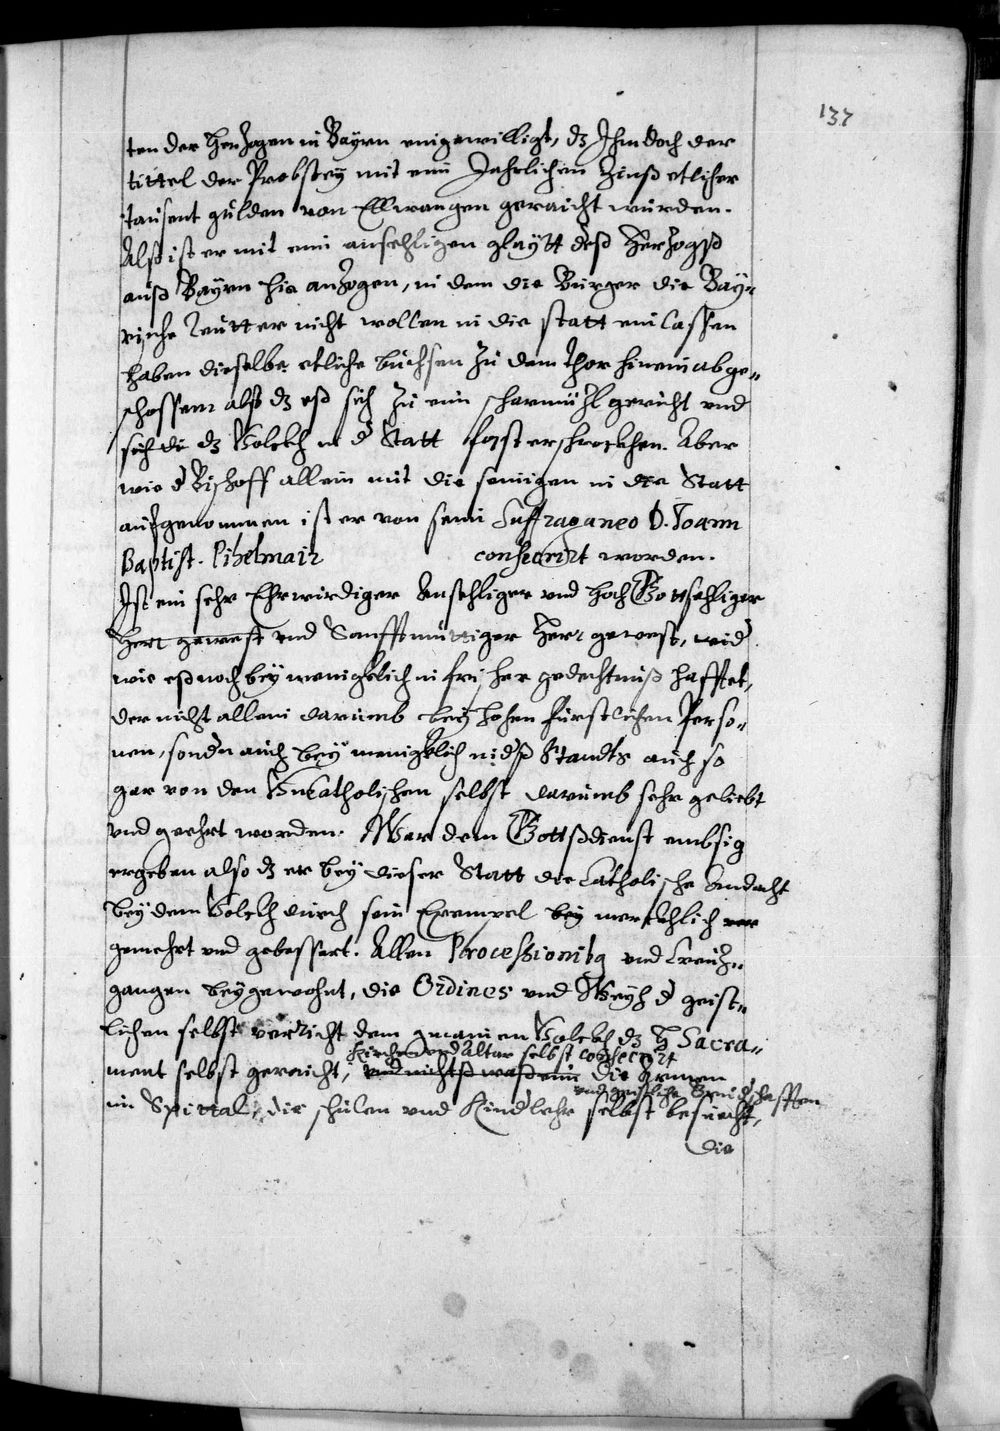 137
ten der Herzogen in Bayrn eingewilligt, dz Ihm doch der
tittel der Probstey mit eim Jahrlichen Zinß etlicher
tausent gulden von Ellwangen geraicht wurden.
Alß ist er mit eim ansehligen glaytt deß Herzogß
auß Bayrn hie anzogen, in dem die Burger die Bay-
rische Reutter nicht wollen in die statt einlassen
haben dieselbe etliche buchsen zu dem thor hinein abge-
schossen also dz eß sich zu eim scharmützl gericht und
sich dz Volckh in d Statt fast erschrockhen. Aber
wie d Bischoff allein mit die seinigen in die Statt
aufgenommen ist er von seim Suffraganeo D. Joann
Baptist. Pihelmair consecrirt worden.
Ist ein sehr Ehrwirdiger Ansehliger und hoch Gottsehliger
Herr gewest und Sanfftmüttiger Herr gewest, und
wie eß noch bey menigklich in frischer gedechtnuß hafftet,
der nicht allein darumb bey hohen Fürstlichen Perso-
nen, sondn auch bey menigklich nidß Standts auch so
gar von den Uncatholischen selbst darumb sehr geliebt
und geehrt worden. War dem Gottsdienst embsig
ergeben also dz er bey dieser Statt die Catholische Andacht
bey dem Volckh durch sein Exempel bey merckhlich ver
gemehrt und gebessert. Allen Processionibq und Creutz-
gangen beygewohnt, die Ordines und Weyh d geist-
lichen selbst verricht dem gmainen Volckh dz H Sacra-
Kirchen und Altar selbst consecrirt
ment selbst geraicht, und nichtß waß ein die Armen
und geistliche Bruderschafften
im Spittal, die schulen und Kindlehr selbst besucht,
die